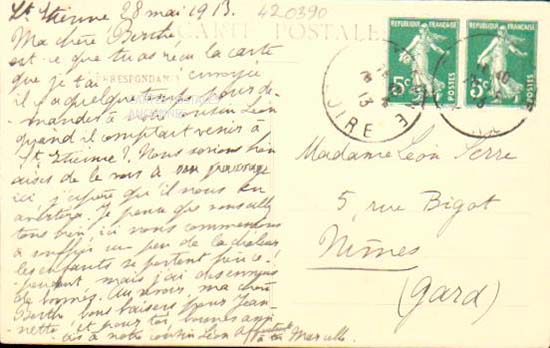 St Etienne 28 mai 1913.
420390
CARTE POSTALE
Ma chère Berthe
est-ce que tu as reçu la carte
que je t'ai envoyée
CORRESPONDANCE
il y a quelque temps pour de-
mander à notre cousin Léon
quand il comptait venir à
St Etienne? Nous serions bien
aises de le voir à son passage
ici, j'espère qu'il nous en
avertira. Je pense que vous allez
tous bien ici nous commençons
à souffrir un peu de la chaleur
les enfants se portent bien ce-
pendant mais j'ai
de bonnes. Au revoir, ma chère
Berthe bons baisers pour Jean-
nette et pour toi, bonnes ami-
tiés à notre cousin Léon
ta Marcelle
REPUBLIQUE FRANÇAISE
5c
POSTES
REPUBLIQUE FRANÇAISE
5c
POSTES
LOIRE
Madame Léon Serre
5, rue Bigot
Nîmes
(Gard)